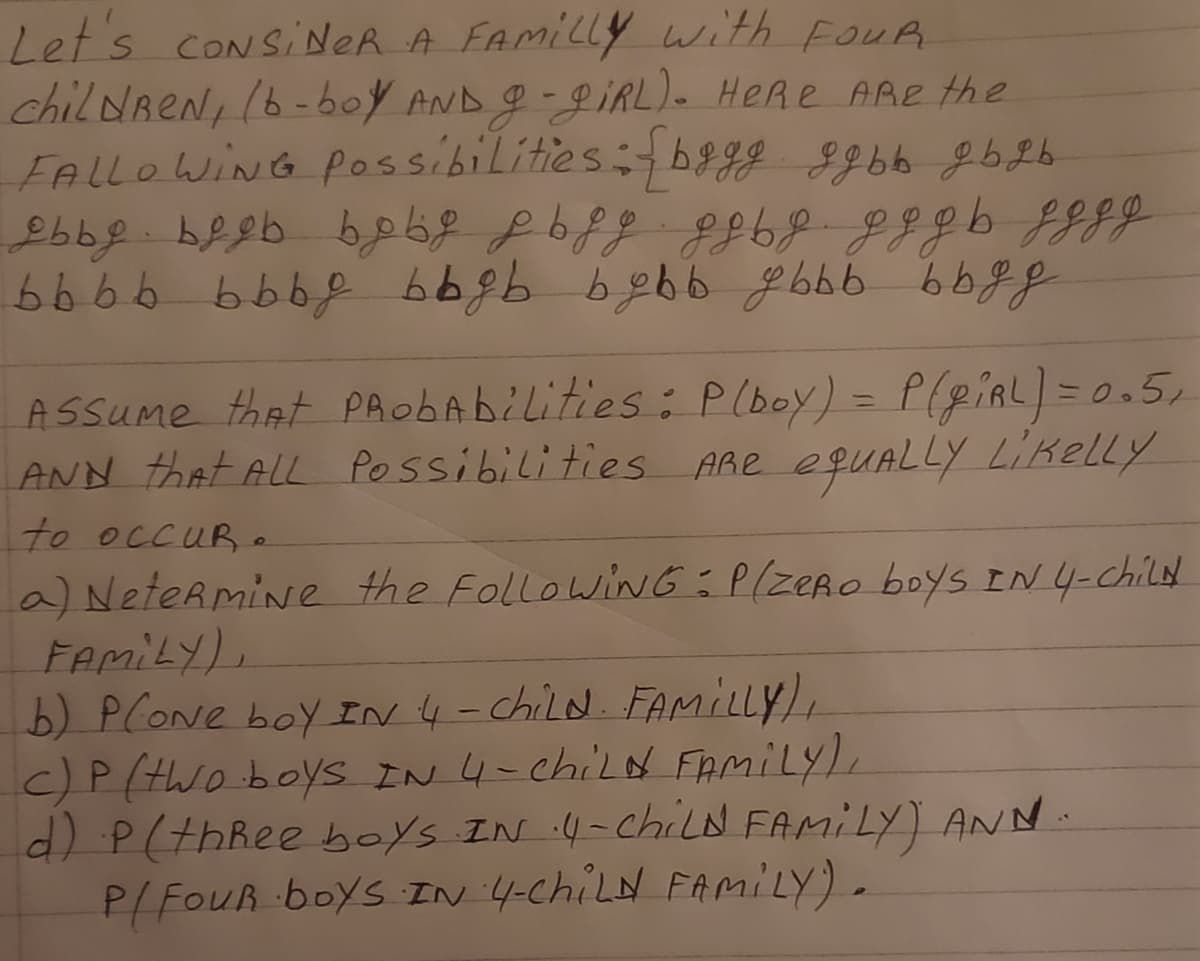 Let's CONSiNeR A FAMillY with FouR
chilNReN, (b-boY AND g-giRL). HeRe ARe the
FAlloWiNG possibilities:{bggg ggbb gbgb
gbbg. bggb bgbg gbgg. ggbg. gggb gggg
bbbb bbbg bbgb bgbb gbbb bbgg
ASSume thAt PRobAbilities: P(boy) = P(giRL)=0.5,
ANN thAt ALL PoSSibilities ARe equALLY LiKelly
to OCCUR.
a) NeteRmiNe the FolloWiNG: P(ZeRo boys IN 4-chilN
FAMiLY),
b) P(ONe boY IN 4-chiLN. FAMillY),
c) P(two boys IN 4-chiLN FAMiLY),
d) P(thRee boys IN 4-chiLN FAMiLY) ANN.
P(FouR boYS IN 4-chiLN FAMiLY).